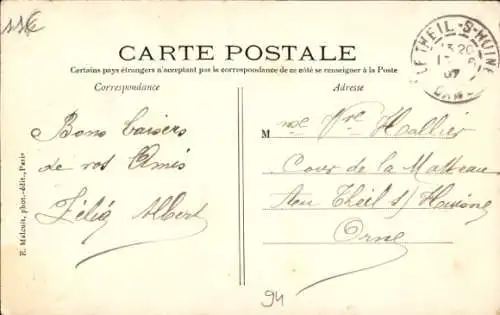 11€
CARTE POSTALE
Certains pays étrangers n'acceptant pas la correspondance de ce côté se renseigner à la Poste
Correspondance
Adresse
LE THEIL-S-HUINE
13 20
07
ORNE
Bons baisers
de vos Amis
Félix Albert
E. Malcuit, phot.-édit., Paris
M me Vve Hallier
Cour de la
Au Theil s/ Huisne
Orne
94